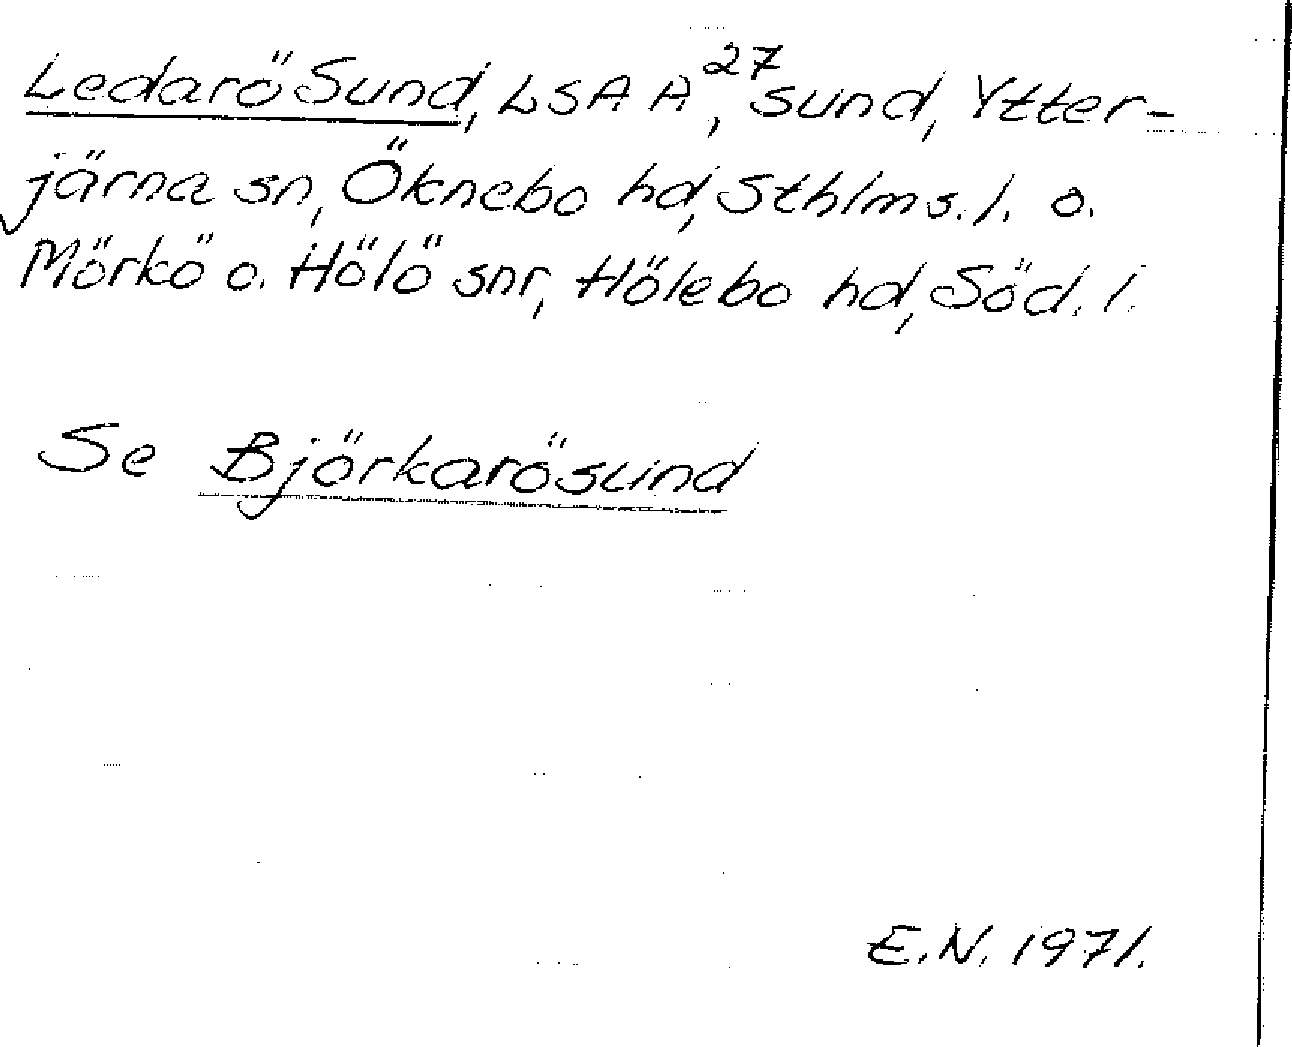 Ledarö Sund, LSA A²⁷, sund, Ytter-
järna sn, Öknebo hd, Sthlms. l. o.
Mörkö o. Hölö snr, Hölebo hd, Söd. l.
Se Björkarösund
E.N. 1971.